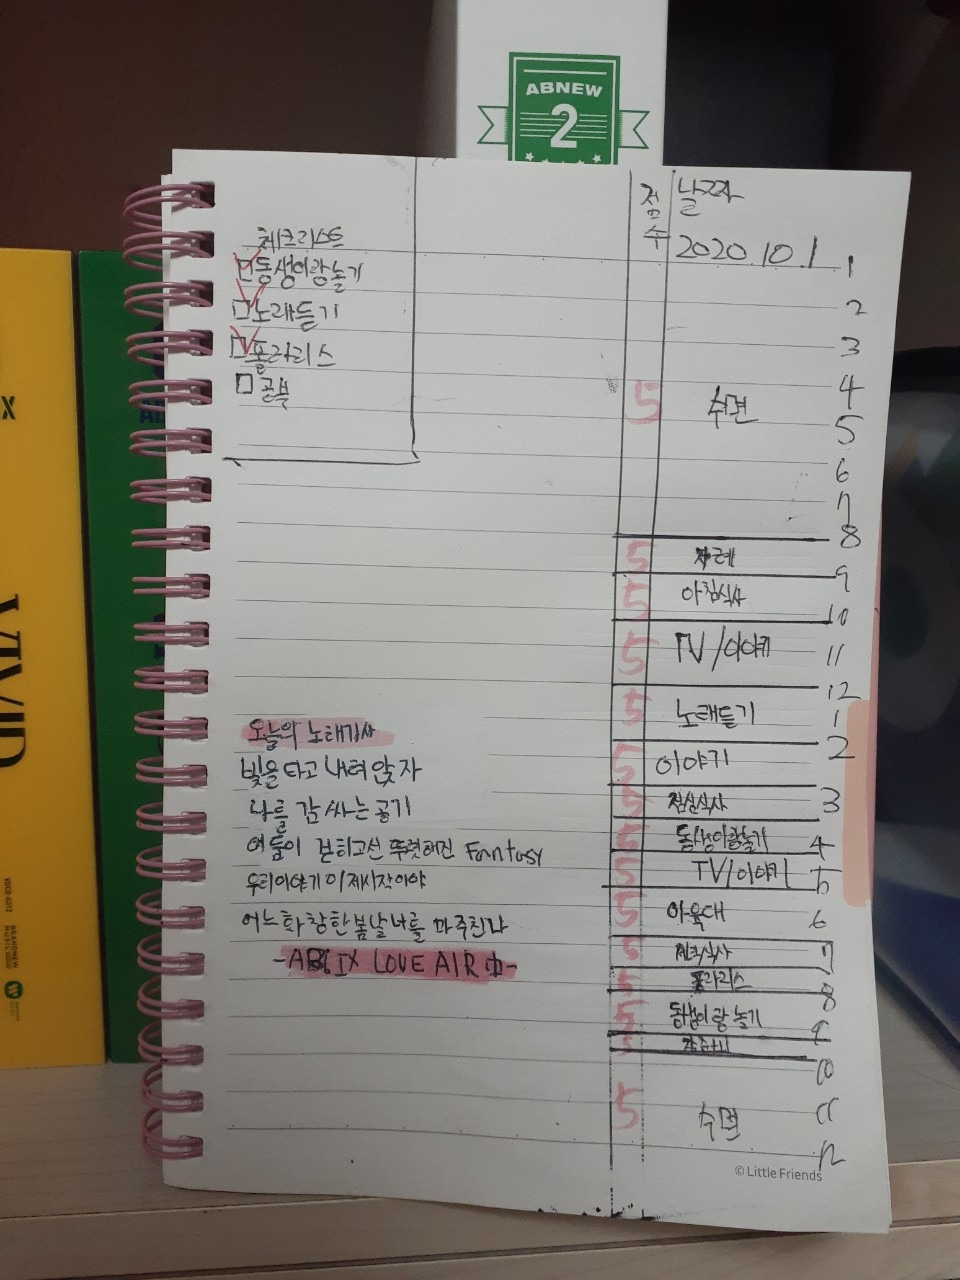 ABNEW
2
체크리스트
동생이랑놀기
노래듣기
폴라리스
공부
오늘의 노래가사
빛을 타고 내려 앉자
나를 감싸는 공기
여둠이 걷히고선 뚜렷해진 Fantasy
우리이야기 이제시작이야
어느화창한봄날 너를 마주친나
-AB6IX LOVE AIR 中-
점수
날짜
2020.10.1
1
2
3
4
5 수면
5
6
7
8
5 차례
9
5 아침식사
10
5 TV/이야기
11
12
5 노래듣기
1
2
5 이야기
5 점심식사
3
5 동생이랑놀기
4
5 TV/이야기
5
5 아육대
6
5 저녁식사
7
5 폴라리스
8
5 동생이랑 놀기
9
5
10
11
5 수면
12
© Little Friends
VIVID
X